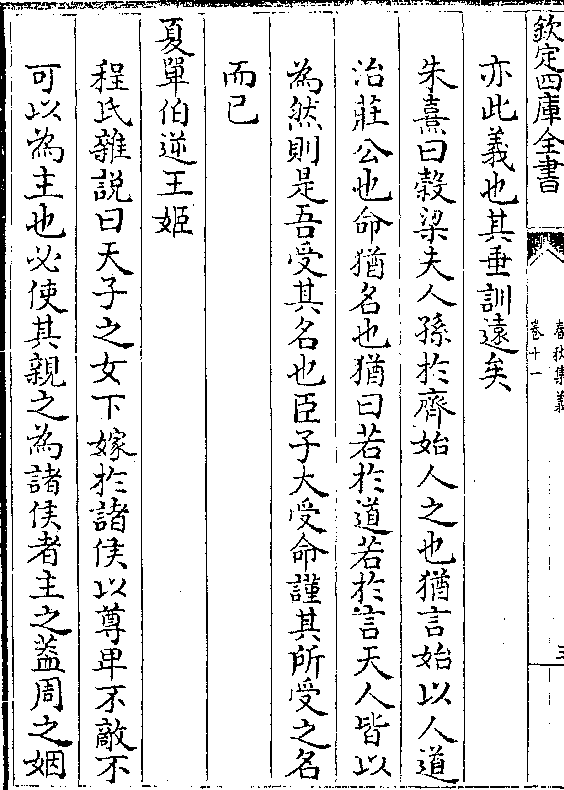 欽定四庫全書
春秋集義
卷十一
三
亦此義也其垂訓遠矣
朱熹曰穀梁夫人孫於齊始人之也猶言始以人道
治莊公也命猶名也猶曰若於道若於言天人皆以
為然則是吾受其名也臣子大受命謹其所受之名
而已
夏單伯逆王姬
程氏雜說曰天子之女下嫁於諸侯以尊卑不敵不
可以為主也必使其親之為諸侯者主之蓋周之姻